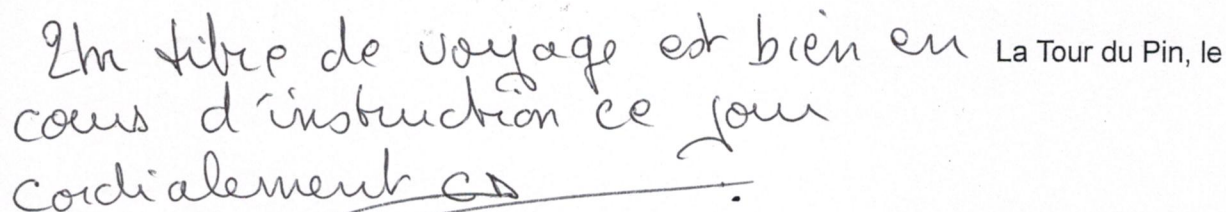 Un titre de voyage est bien en La Tour du Pin, le
cours d'instruction ce jour
cordialement CD